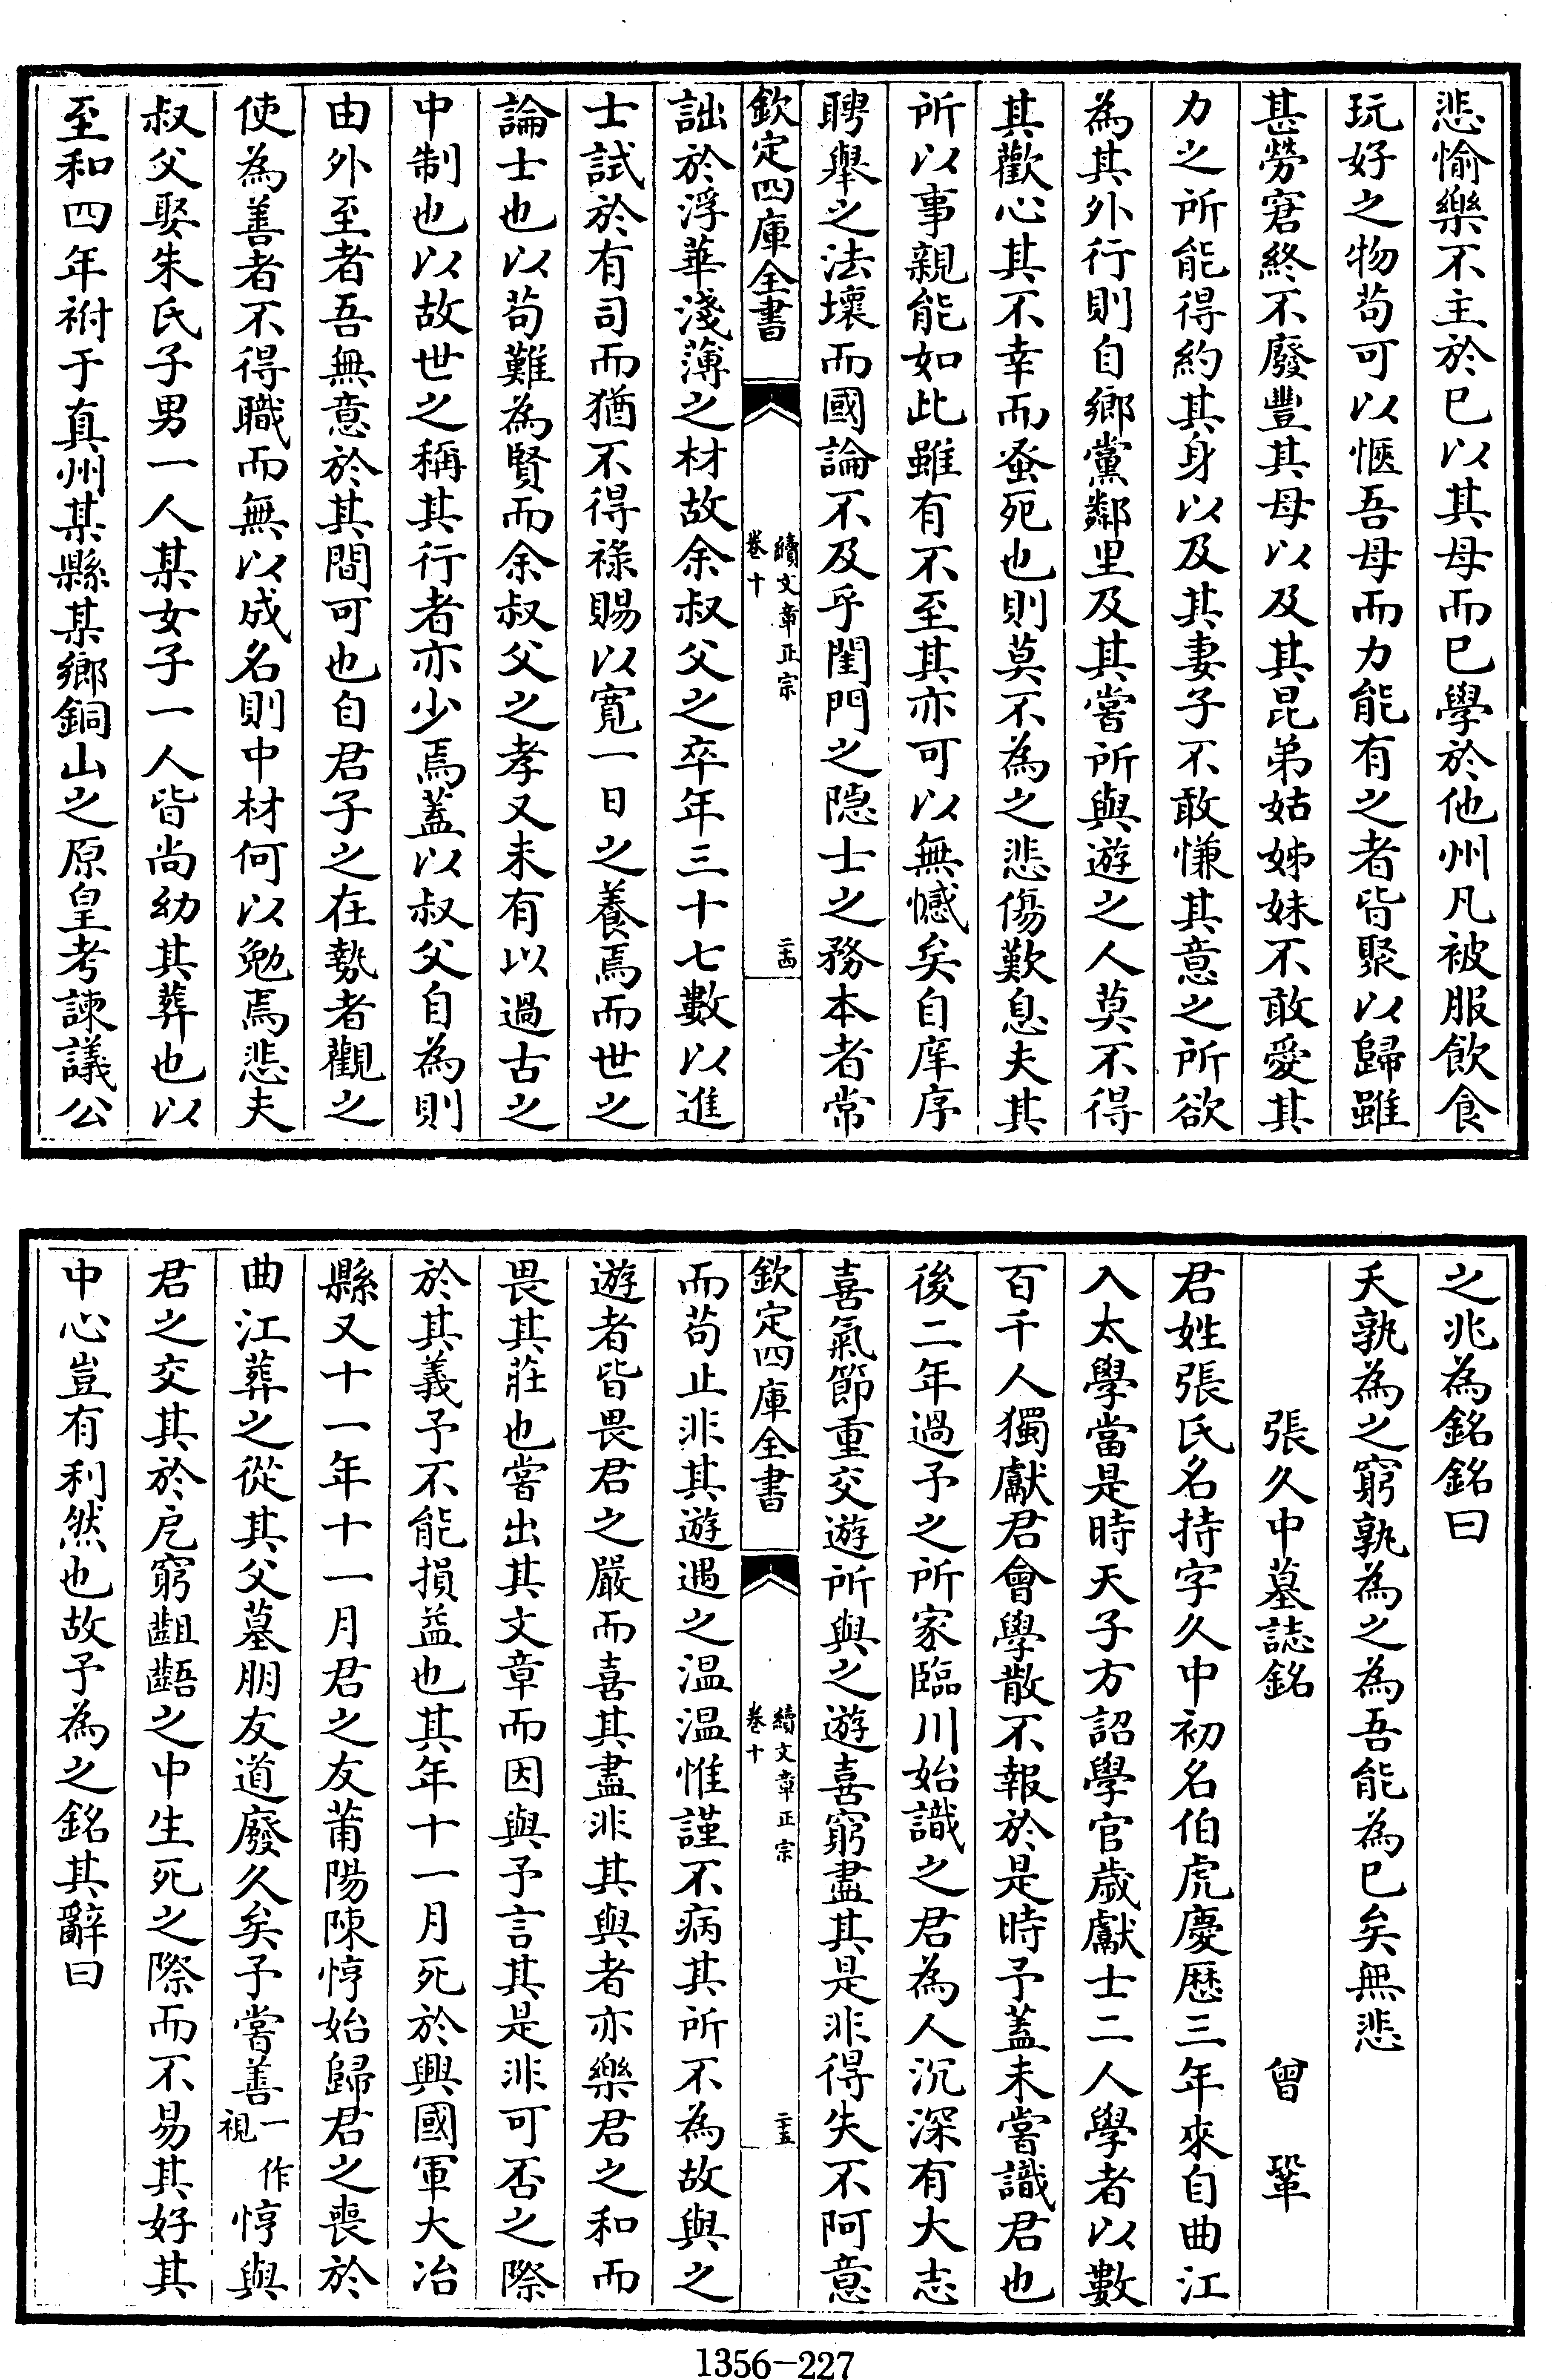 悲愉樂不主於已以其母而已學於他州凡被服飲食
玩好之物苟可以愜吾母而力能有之者皆聚以歸雖
甚勞窘終不廢豐其母以及其昆弟姑姊妹不敢愛其
力之所能得約其身以及其妻子不敢慊其意之所欲
為其外行則自鄉黨鄰里及其嘗所與遊之人莫不得
其歡心其不幸而蚤死也則莫不為之悲傷歎息夫其
所以事親能如此雖有不至其亦可以無憾矣自庠序
聘舉之法壞而國論不及乎閨門之隱士之務本者常
欽定四庫全書
續文章正宗
卷十
二四
詘於浮華淺薄之材故余叔父之卒年三十七數以進
士試於有司而猶不得祿賜以寬一日之養焉而世之
論士也以苟難為賢而余叔父之孝又未有以過古之
中制也以故世之稱其行者亦少焉蓋以叔父自為則
由外至者吾無意於其間可也自君子之在勢者觀之
使為善者不得職而無以成名則中材何以勉焉悲夫
叔父娶朱氏子男一人某女子一人皆尚幼其葬也以
至和四年祔于真州某縣某鄉銅山之原皇考諫議公
之兆為銘銘曰
夭孰為之窮孰為之為吾能為已矣無悲
張久中墓誌銘　曾鞏
君姓張氏名持字久中初名伯虎慶歷三年來自曲江
入太學當是時天子方詔學官歲獻士二人學者以數
百千人獨獻君會學散不報於是時予蓋未嘗識君也
後二年過予之所家臨川始識之君為人沉深有大志
喜氣節重交遊所與之遊喜窮盡其是非得失不阿意
欽定四庫全書
續文章正宗
卷十
二五
而苟止非其遊遇之溫溫惟謹不病其所不為故與之
遊者皆畏君之嚴而喜其盡非其與者亦樂君之和而
畏其莊也嘗出其文章而因與予言其是非可否之際
於其義予不能損益也其年十一月死於興國軍大冶
縣又十一年十一月君之友莆陽陳惇始歸君之喪於
曲江葬之從其父墓朋友道廢久矣予嘗善一作視惇與
君之交其於戹窮齟齬之中生死之際而不易其好其
中心豈有利然也故予為之銘其辭曰
1356-227